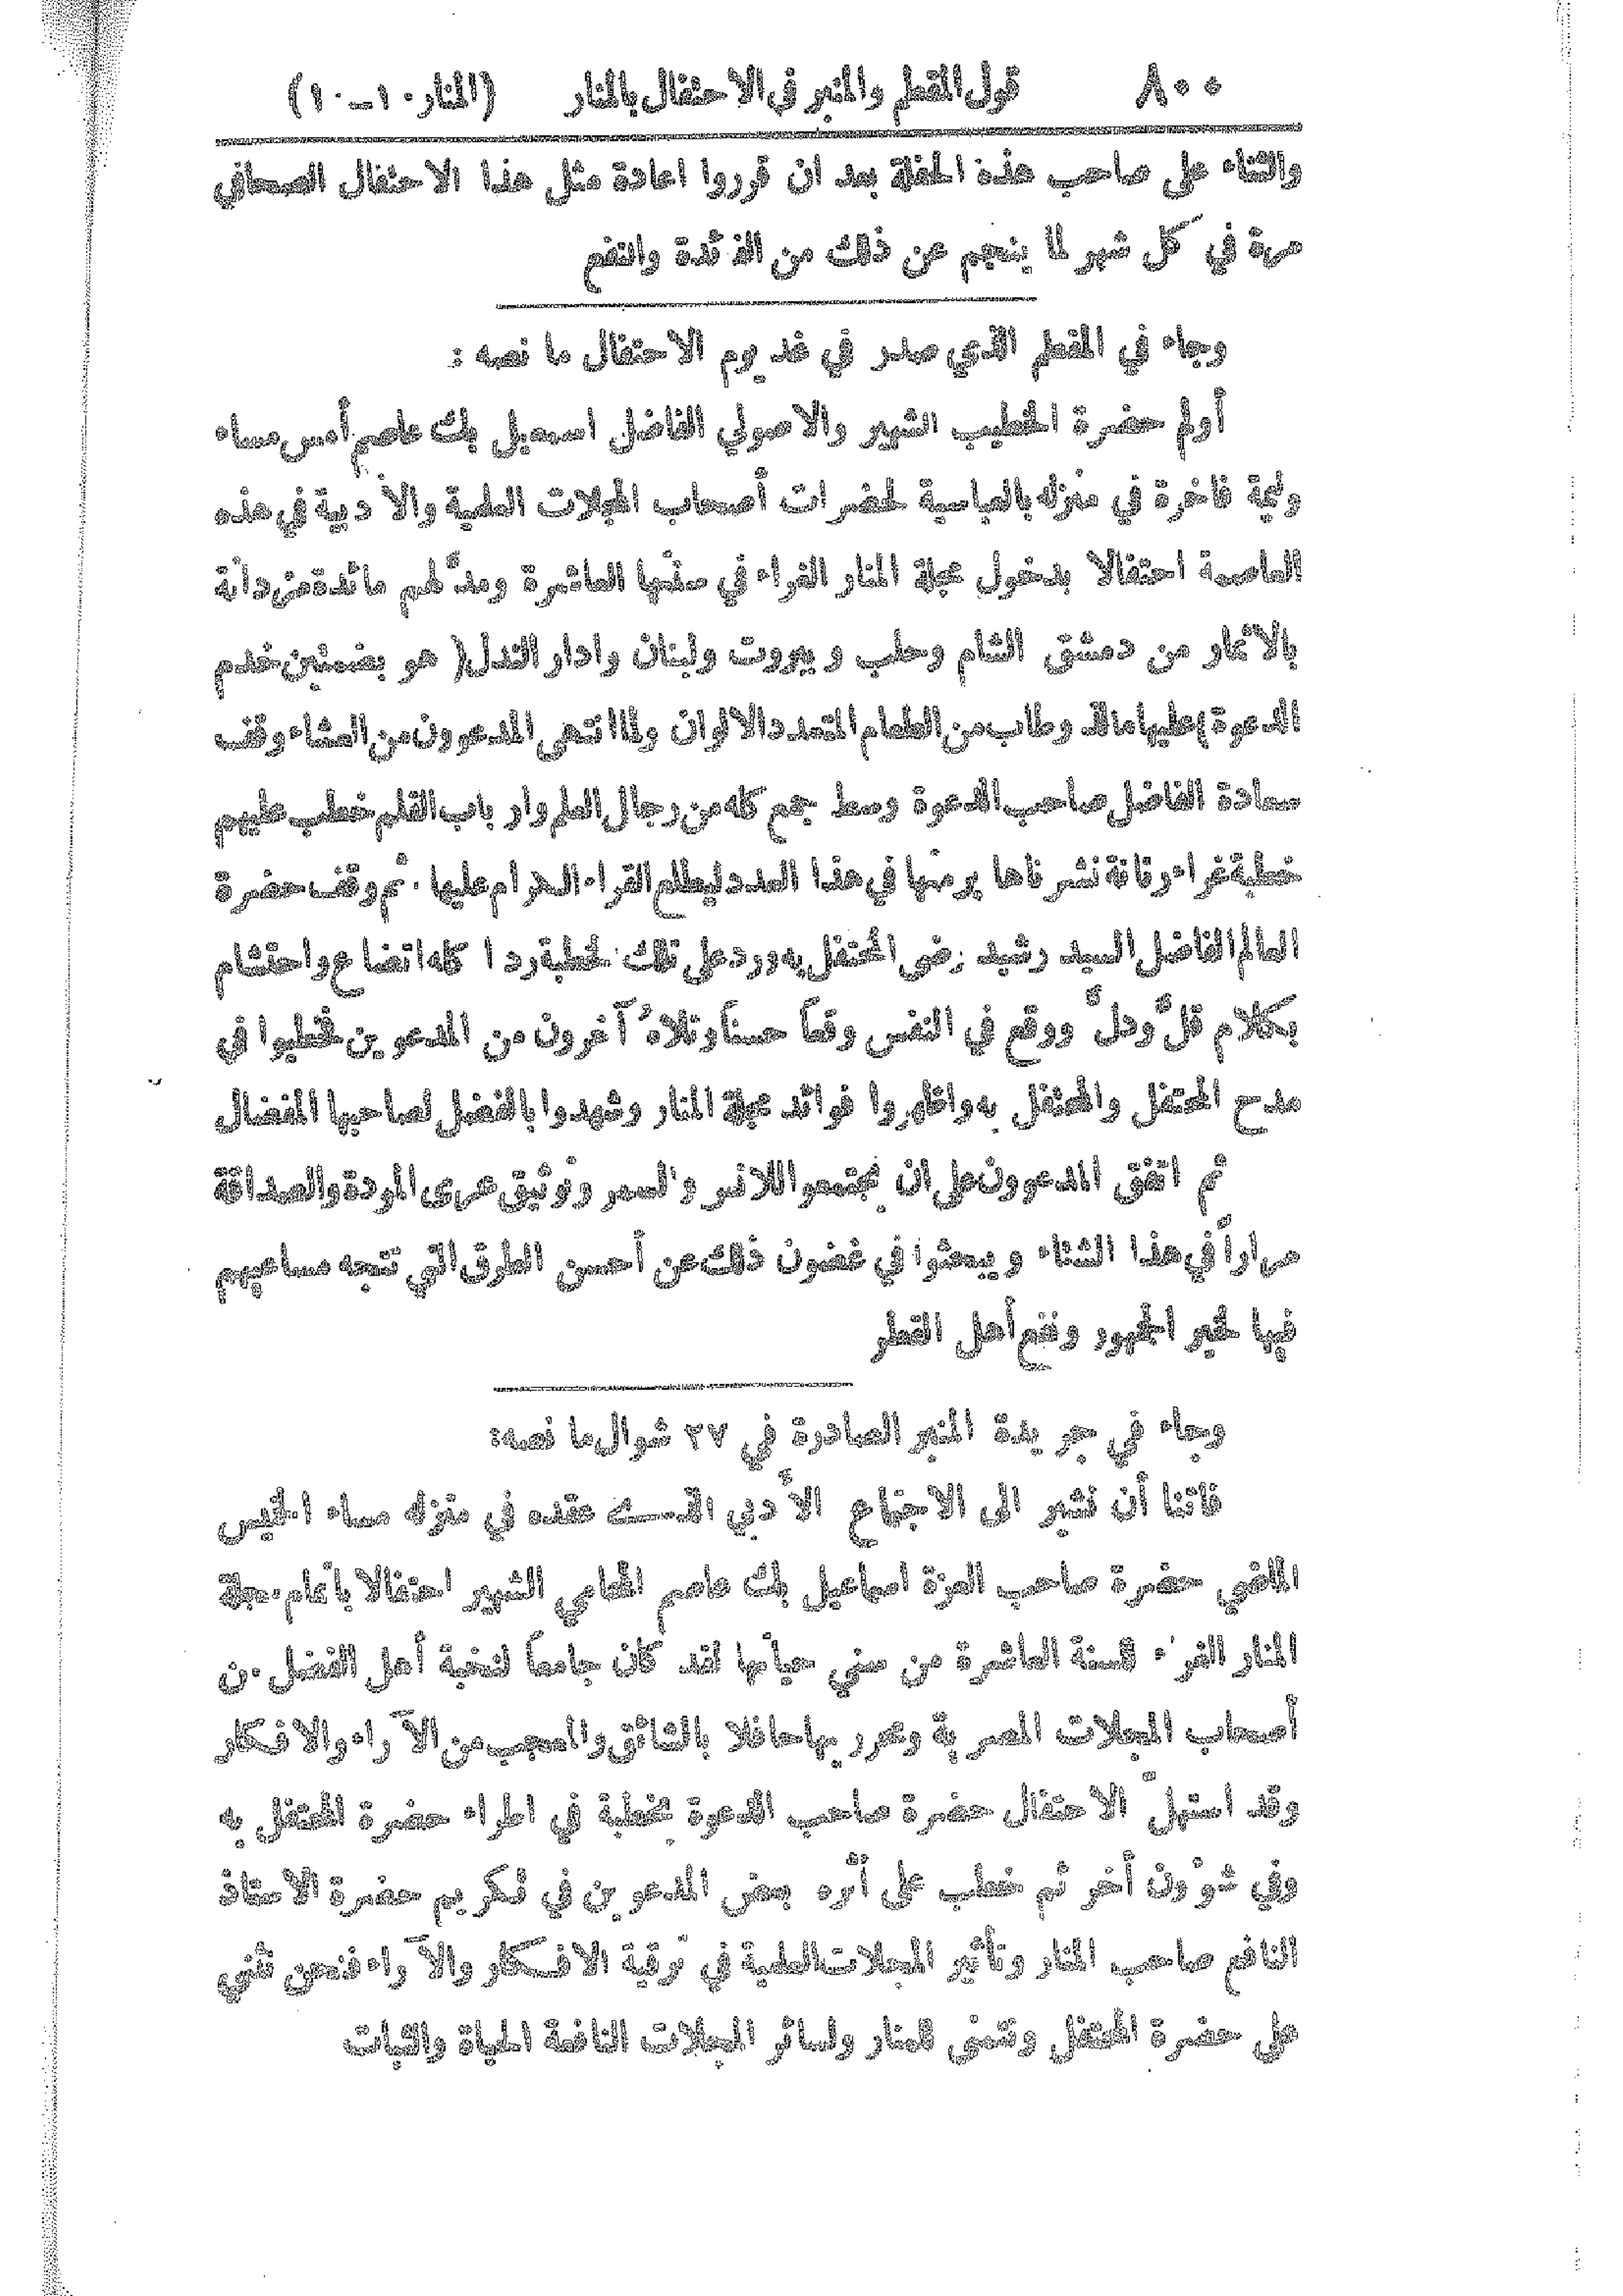 ٨٠٠ قول المقطم والمنبر في الاحتفال بالمنار (المنار ١٠ـ١٠)
والثناء على صاحب هذه الحفلة بعد ان قرروا اعادة مثل هذا الاحتفال الصحافي
مرة في كل شهر لما ينجم عن ذلك من الفائدة والنفع
وجاء في المقطم الذي صدر في غد يوم الاحتفال ما نصه :
أولم حضرة الخطيب الشهير والاصولي الفاضل اسمعيل بك عاصم أمس مساء
وليمة فاخرة في منزله بالعباسية لحضرات أصحاب المجلات العلمية والأدبية في هذه
العاصمة احتفالا بدخول مجلة المنار الغراء في سنتها العاشرة ومدَّ لهم مائدة مزدانة
بالاثمار من دمشق الشام وحلب وبيروت ولبنان وادار الندل( هو بضمتين خدم
الدعوة)عليها مالذ وطاب من الطعام المتعدد الالوان ولما انتهى المدعوون من العشاء وقف
سعادة الفاضل صاحب الدعوة وسط جمع كله من رجال العلم وارباب القلم خطب عليهم
خطبة غراء رنانة نشرناها برمتها في هذا العدد ليطلع القراء الكرام عليها . ثم وقف حضرة
العالم الفاضل السيد رشيد رضى المحتفل به ورد على تلك الخطبة ردا كله اتضاع واحتشام
بكلام قلَّ ودلَّ ووقع في النفس وقعاً حسناً وتلاهُ آخرون من المدعوين فخطبوا في
مدح المحتفل والمحتفل به واظهروا فوائد مجلة المنار وشهدوا بالفضل لصاحبها المفضال
ثم اتفق المدعوون على ان يجتمعوا للانس والسمر وتوثيق عرى المودة والصداقة
مراراً في هذا الشتاء ويبحثوا في غضون ذلك عن أحسن الطرق التي تتجه مساعيهم
فيها لخير الجمهور ونفع أهل القطر
وجاء في جريدة المنبر الصادرة في ٢٧ شوال ما نصه:
فاتنا أن نشير الى الاجتماع الأدبي الذي عقده في منزله مساء الخميس
الماضي حضرة صاحب العزة اسماعيل بك عاصم المحامي الشهير احتفالا باتمام مجلة
المنار الغراء للسنة العاشرة من سني حياتها لقد كان جامعاً لنخبة أهل الفضل من
أصحاب المجلات المصرية ومحرريها حافلا بالشائق والمعجب من الآراء والافكار
وقد استهلَّ الاحتفال حضرة صاحب الدعوة بخطبة في اطراء حضرة المحتفل به
وفي شؤون أخر ثم خطب على أثره بعض المدعوين في تكريم حضرة الاستاذ
النافع صاحب المنار وتأثير المجلات العلمية في ترقية الافكار والآراء فنحن نثني
على حضرة المحتفل ونتمنى للمنار ولسائر المجلات النافعة الحياة والثبات